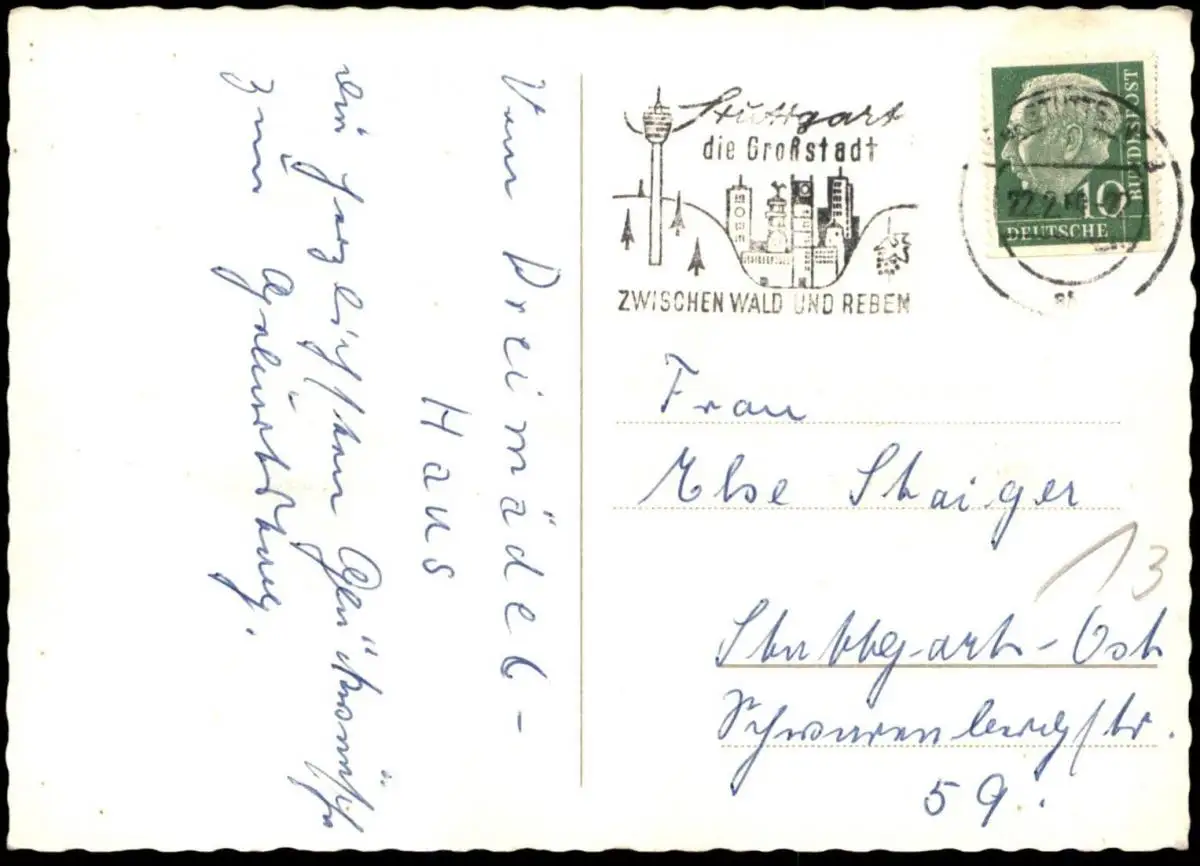 Vom Dreimäderl-
Haus
die herzlichsten Glückwünsche
zum Geburtstag.
Stuttgart
die Großstadt
ZWISCHEN WALD UND REBEN
22.2.
10
DEUTSCHE
BUNDESPOST
Frau
Else Staiger
13
Stuttgart-Ost
Schwarenbergstr.
59.